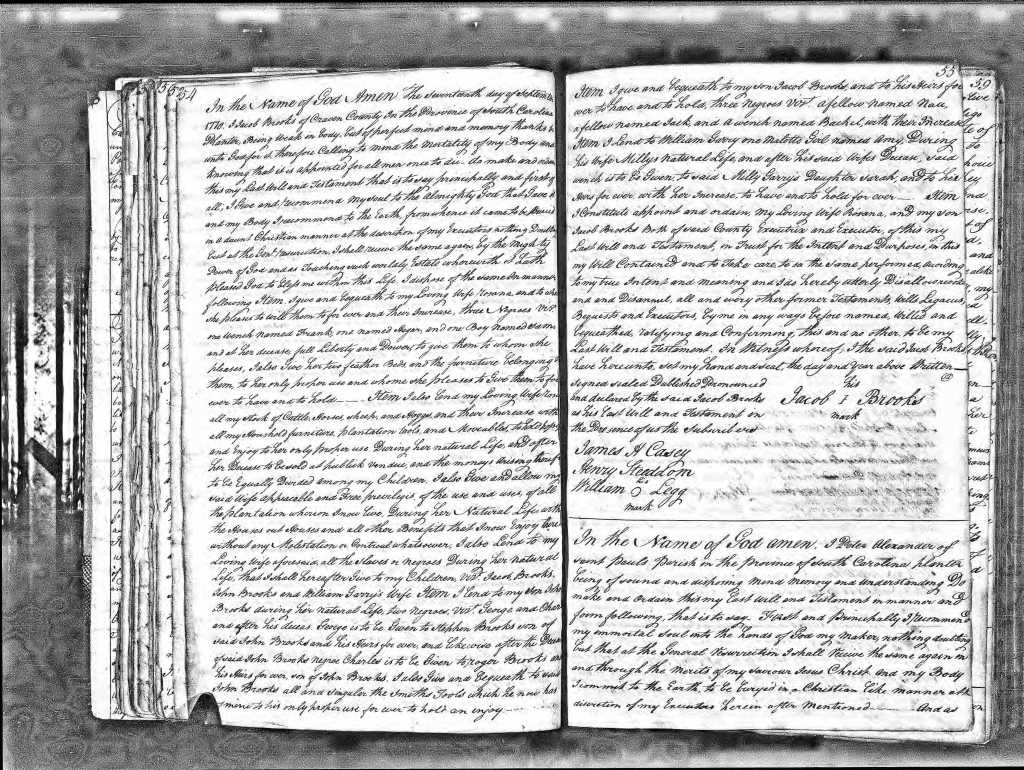 54
In the Name of God Amen The Seventeenth day of
1770. I Jacob Brooks of Craven County In the Province of South Carolina
Planter Being Weak in body, But of perfect mind and memory thanks be
unto God for it therefore Calling to mind the Mortality of my Body and
knowing that it is appointed for all men once to die do make and ordain
this my Last Will and Testament that is to say principally and first of
all, I Give and recommend My Soul to the Almighty God that Gave it
and my Body I recommend to the Earth, from whence it came to be
in a decent Christian manner at the descrition of my Executors nothing
But at the Genl. resurrection I shall receive the same again, by the Mighty
Power of God and as Touching such worldly Estate wherewith It hath
pleased God to bless me with in this Life, I dispose of the same In manner
following Item I give and bequeath to my Loving Wife rosana, and to whom
she pleaus to will them to for ever and their Increase, three Negroes Vizt.
one wench named Frank, one named Hager, and one Boy named
and at her decease, full Liberty and Power, to give them to whom she
pleases, I also Give her two feather Beds and the furniture belonging to
them, to her only proper use and whome she pleases to Give them to for
ever to have and to hold Item I also Lend my Loving Wife
all my Stock of Cattle, Horses, sheep, and Hoggs, and their Increase with
all my Household furniture, plantation tools, and Moveables, to
and Enjoy to her only proper use During her natural Life, and after
her Decease to be sold at publick vendue, and the moneys arising
to be Equally Divided among my Children, I also Give and allow my
said Wife appareable and Free previlegis, of the use and uses of all
the plantation wherion I now Live During her Natural Life, with
the Houses out Houses and all other Benefits that I now Enjoy here
without any Molestation or Controul whatsoever, I also Lend to my
Loving Wife aforesaid, all the Slaves or negroes During her natural
Life, that I shall hereafter Give to my Children, Vizt. Jacob Brooks,
John Brooks and William Garry's Wife Item I Lend to my son John
Brooks during his Natural Life, two Negroes, Vizt. George and Charles
and after his decese George is to be Given to Stephen Brooks son of
said John Brooks and his Heirs for ever, and Likewise after the
of said John Brooks negroe Charles is to be Given to roger Brooks and
his Heirs for ever, son of John Brooks. I also Give and bequeath to said
John Brooks all and singular the Smiths Tools which he now has
of mine to his only proper use for ever to hold an enjoy
55
Item I give and bequeath to my son Jacob Brooks, and to his Heirs for
ever to have and to hold, three Negroes Vizt. a fellow named Nau,
a fellow named Jack, and a wench named Rachel, with their Increase
Item I Lend to William Garry one Malotto Girl named Amy, During
his Wife Milly's Natural Life, and after his said Wifes Decease, said
wench is to be Given, to said Milly Garry's Daughter Sarah, and to her
Heirs for ever, with her Increase, to have and to hold for ever Item
I Constitute appoint and ordain, My Loving Wife Rosana, and my son
Jacob Brooks Both of said County Executrix and Executor, of this my
Last Will and Testament, in Trust for the Intent and Purposes, in this
my Will Contained and to Take care, to se the same, performed, according
to my true Intent and meaning and I do hereby utterly Disallow revoke
and Disannul, all and every other former Testaments, Wills Legacies,
Bequests and Executors, by me in any ways before named, Willed and
bequeathed, ratifying and Confirming, this and no other, to be my
Last Will and Testament. In Witness whereof, I the said Jacob Brooks
have hereunto, set my hand and seal, the day and year above Written
signed sealed Published Pronounced
and declared by the said Jacob Brooks
as his Last Will and Testament in
the Presence of us the Subscribers
his
Jacob I Brooks
mark
James A Casey
Henry Steadom
William Legg
mark
In the Name of God amen, I Peter Alexander of
saint Pauls Parish in the province of South Carolina planter
being of sound and disposing Mend Memory and Understanding Do
make and Ordain this my Last Will and Testament in manner and
form following, that is to say. First and Principally I Recommend
my immortal Soul into the hands of God my Maker, nothing doubting
but that at the General Resurrection I shall Receive the same again in
and through the Merits of my Saviour Jesus Christ and my Body
I commit to the Earth to be buryed in a Christian like manner at the
discretion of my Executors herein after Mentioned And as
59